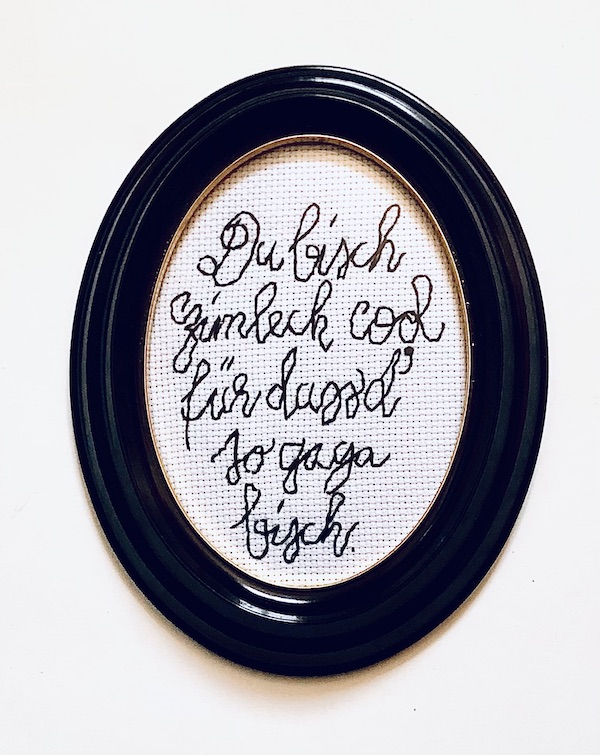 Du bisch
zimlech cool
für dass d'
so gaga
bisch.